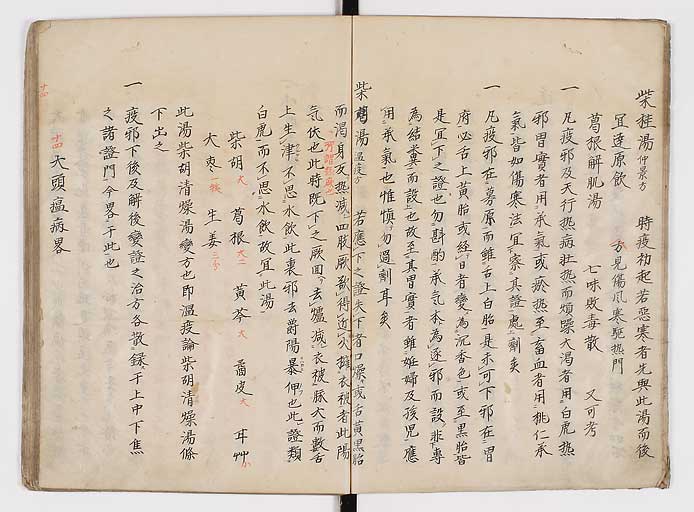 柴桂湯 仲景方 時疫初起若惡寒者先與此湯而後
宜達原飲 方見傷風寒駆熱門
葛根解肌湯 七味敗毒散 又可考
一 凡疫邪及天行热病壮热而煩躁大渴者用白虎热
邪胃實者用承氣或瘀热至畜血者用桃仁承
氣皆如傷寒法宜察其證處劑矣
一 凡疫邪在募原而雖舌上白胎是未可下邪在胃
府必舌上黄胎或經日者變為沉香色或至黒胎皆
是宜下之證也勿斟酌承氣本為逐邪而設非專
為結糞而設也故至其胃實者雖妊婦及孩児應
用承氣也惟慎勿過劑耳矣
柴葛湯 温疫方 若應下之證失下者口燥或舌黄黒胎
而渴身反热減四肢厥 得近火擁衣被者此陽
所謂 厥
氣伏也此時既下之厥回去爐減衣被脉大而數舌
上生津不思水飲此裏邪去欝陽暴伸也此證類
白虎而不思水飲故宜此湯
柴胡 大 葛根 大 黄芩 大 皮 大 耳艸
大枣 生姜 三分
此湯柴胡清燥湯變方也即温疫論柴胡清燥湯條
下出之
一 疫邪下後及解後變證之治方各散録于上中下焦
之諸證門今畧于此也
十四 大頭瘟病畧
十四